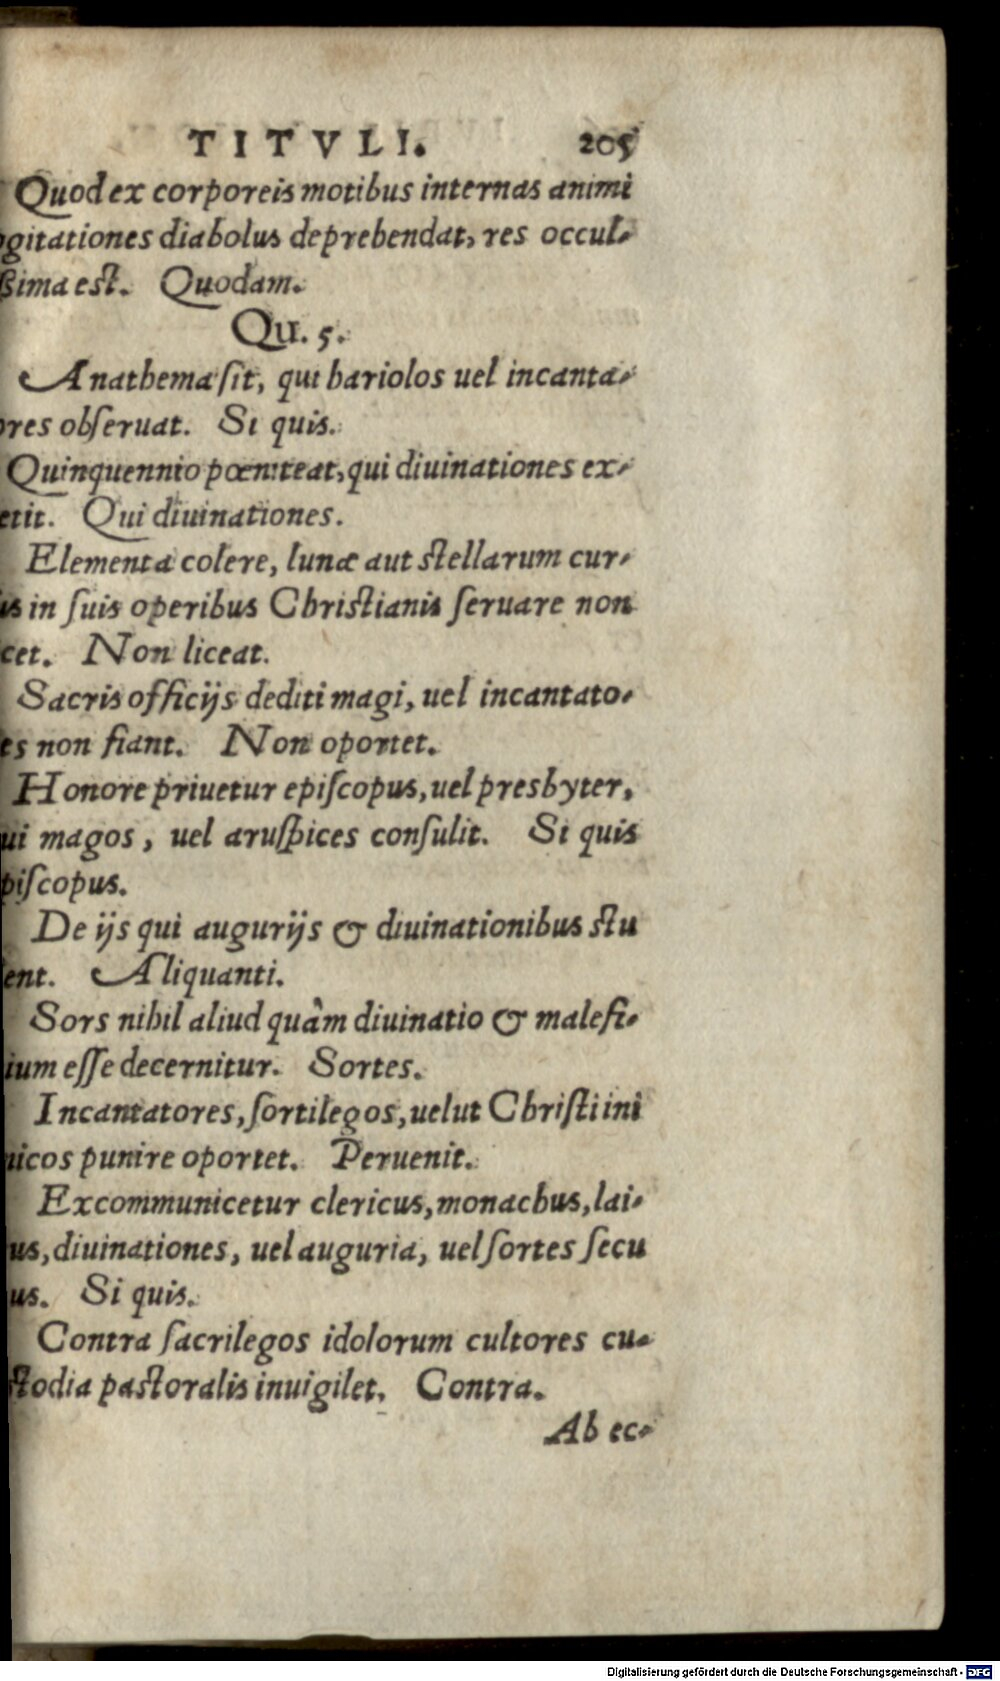 TITVLI. 205
Quod ex corporeis motibus internas animi
ogitationes diabolus deprehendat, res occul-
ßima est. Quodam.
Qu. 5.
Anathema sit, qui hariolos uel incanta-
ores obseruat. Si quis.
Quinquennio pœniteat, qui diuinationes ex-
etit. Qui diuinationes.
Elementa colere, lunæ aut stellarum cur-
us in suis operibus Christianis seruare non
cet. Non liceat.
Sacris officijs dediti magi, uel incantato-
es non fiant. Non oportet.
Honore priuetur episcopus, uel presbyter,
ui magos, uel aruspices consulit. Si quis
piscopus.
De ijs qui augurijs & diuinationibus stu
ent. Aliquanti.
Sors nihil aliud quàm diuinatio & malefi-
ium esse decernitur. Sortes.
Incantatores, sortilegos, uelut Christi ini
micos punire oportet. Peruenit.
Excommunicetur clericus, monachus, lai-
us, diuinationes, uel auguria, uel sortes secu
us. Si quis.
Contra sacrilegos idolorum cultores cu-
stodia pastoralis inuigilet. Contra.
Ab ec-
Digitalisierung gefördert durch die Deutsche Forschungsgemeinschaft - DFG